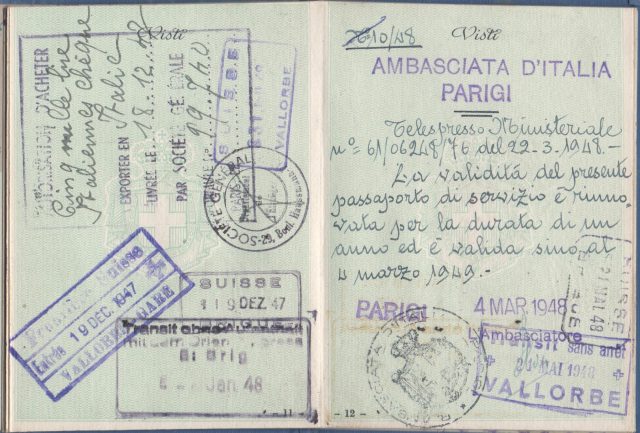 Visti
AUTORISATION D'ACHETER
Cinq mille lire
italiennes chèque
EXPORTER EN Italie
LIVRÉE LE 18.12.48
PAR SOCIÉTÉ GÉNÉRALE
SUISSE
VALLORBE
SOCIÉTÉ GÉNÉRALE
29, Boul. Haussmann
Frontière Suisse
Entrée 19 DEC. 1947
VALLORBE GARE
SUISSE
19 DEZ. 47
Transit ohne Aufenthalt
mit dem Orient Express
B: Brig
Jan 48
- 11 -
10/48
Visti
AMBASCIATA D'ITALIA
PARIGI
Telespresso Ministeriale
n° 61/06248/76 del 22-3.1948.-
La validità del presente
passaporto di servizio è rinno,
vata per la durata di un
anno ed è valida sino al
4 marzo 1949.-
PARIGI 4 MAR 1948
L'Ambasciatore
SUISSE
21 MAI 48
Transit sans arrêt
21 MAI 1948
VALLORBE
- 12 -